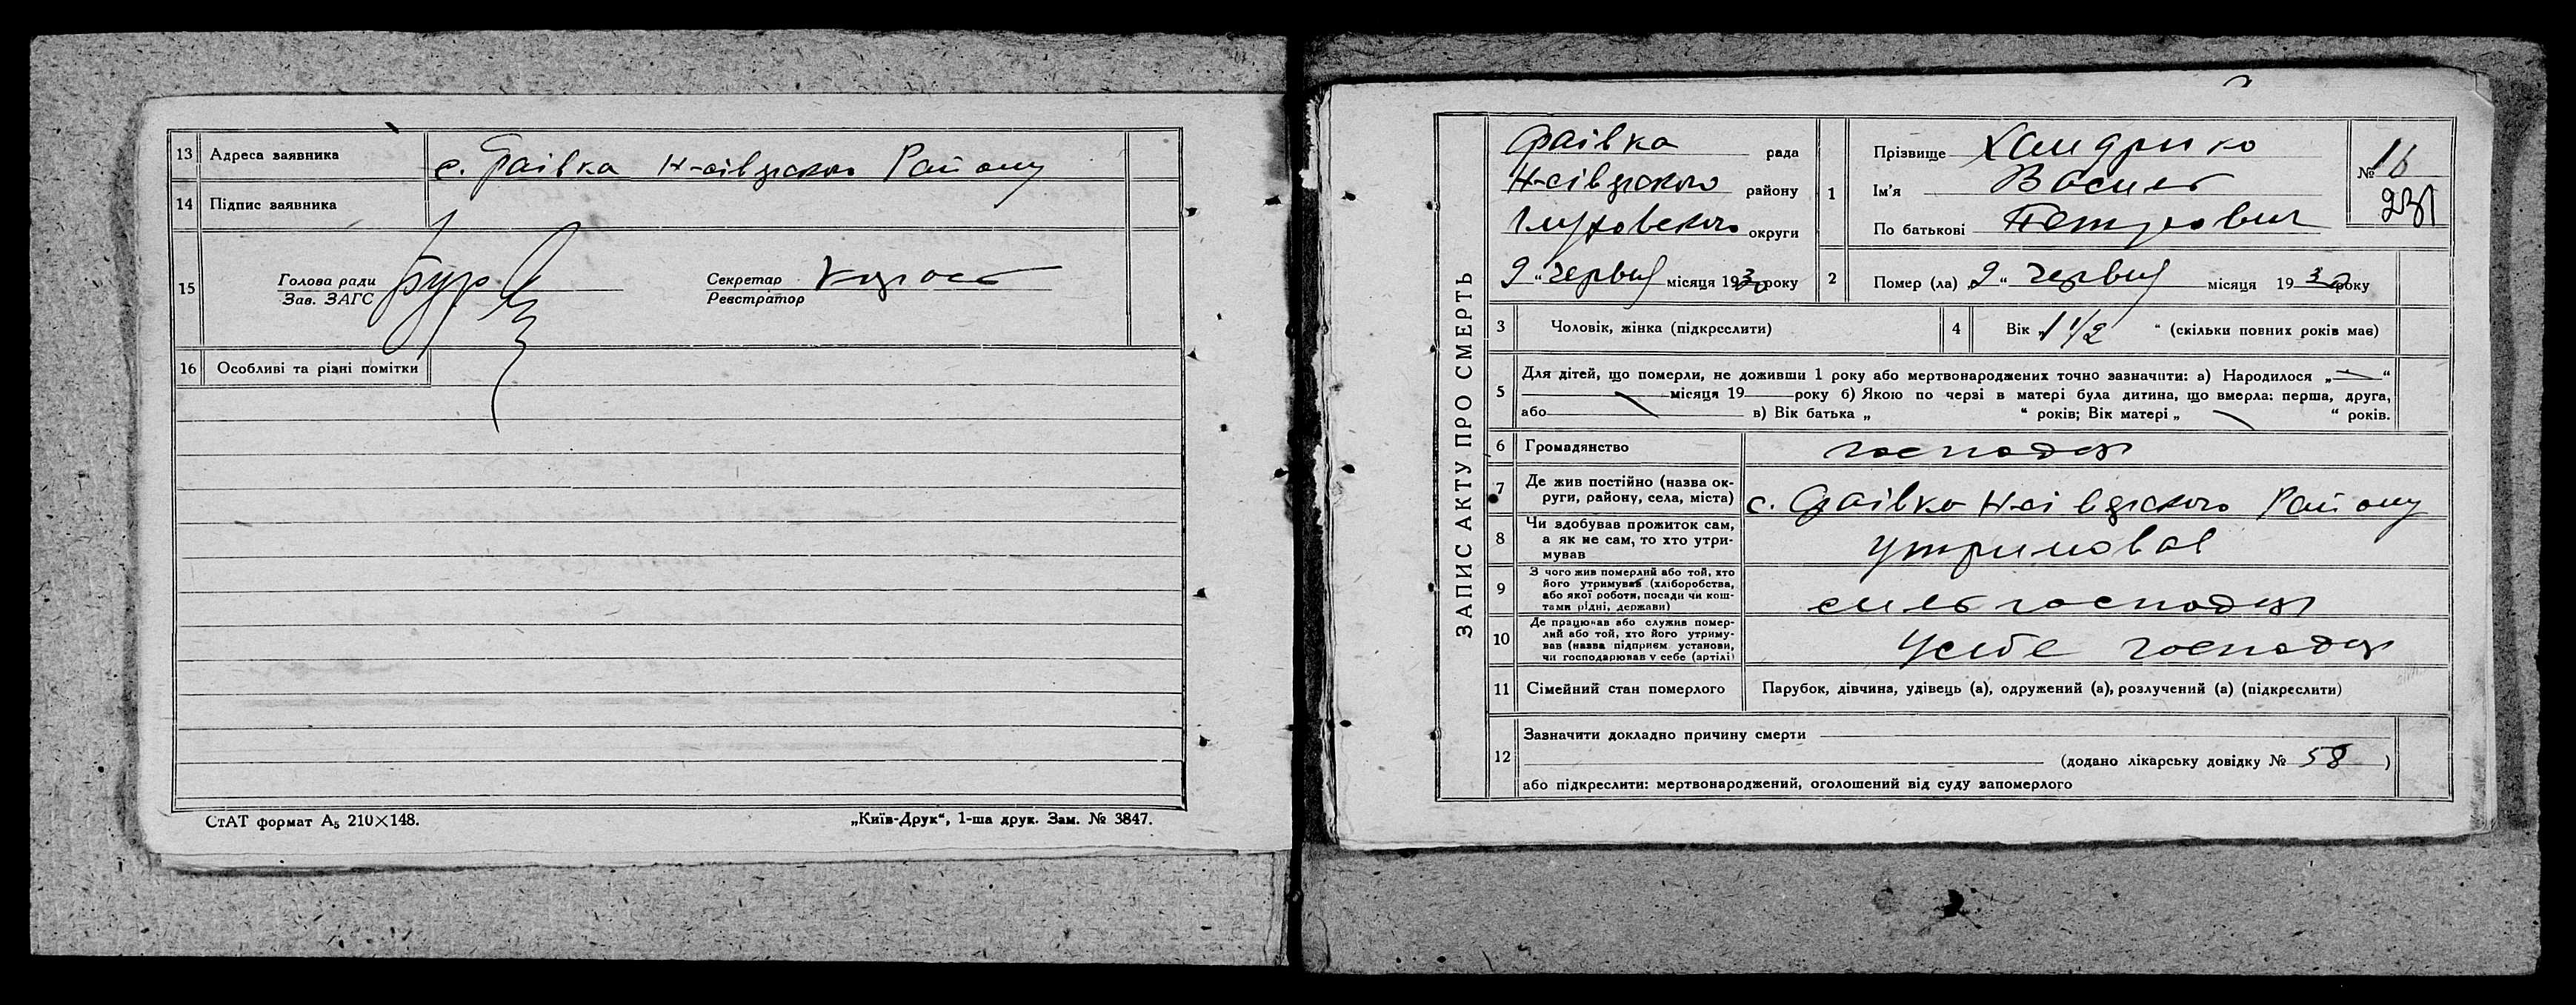 13 Адреса заявника с. Фаівка Н-сівэрского Району
14 Підпис заявника
15 Голова ради Секретар
Зав. ЗАГС Реєстратор
16 Особливі та різні помітки
СтАТ формат А₅ 210×148. „Київ-Друк“, 1-ша друк. Зам. № 3847.
ЗАПИС АКТУ ПРО СМЕРТЬ
Фаівка рада
Н-сівэрского району
Глуховского округи
9 “ червня місяця 1930 року
1 Прізвище Хандрико
Ім'я Василь
По батькові Петрович
№ 16
231
2 Помер (ла) „ 9 “ червня місяця 19 30 року
3 Чоловік, жінка (підкреслити)
4 Вік „ 1 1/2 “ (скільки повних років має)
5 Для дітей, що померли, не доживши 1 року або мертвонароджених точно зазначити: а) Народилося „ “
місяця 19 року б) Якою по черзі в матері була дитина, що вмерла: перша, друга,
або в) Вік батька „ “ років; Вік матері „ “ років.
6 Громадянство господар
7 Де жив постійно (назва ок-
руги, району, села, міста) с. Фаівка Н-сівэрского Району
8 Чи здобував прожиток сам,
а як не сам, то хто утри-
мував утримовав
9 З чого жив померлий або той, хто
його утримував (хліборобства,
або якої роботи, посади чи кош-
тами рідні, держави) сильгосподар
10 Де працював або служив помер-
лий або той, хто його утриму-
вав (назва підприєм. установи,
чи господарював у себе (артілі) Усебе господар
11 Сімейний стан померлого Парубок, дівчина, удівець (а), одружений (а), розлучений (а) (підкреслити)
12 Зазначити докладно причину смерти
(додано лікарську довідку № 58 )
або підкреслити: мертвонароджений, оголошений від суду запомерлого